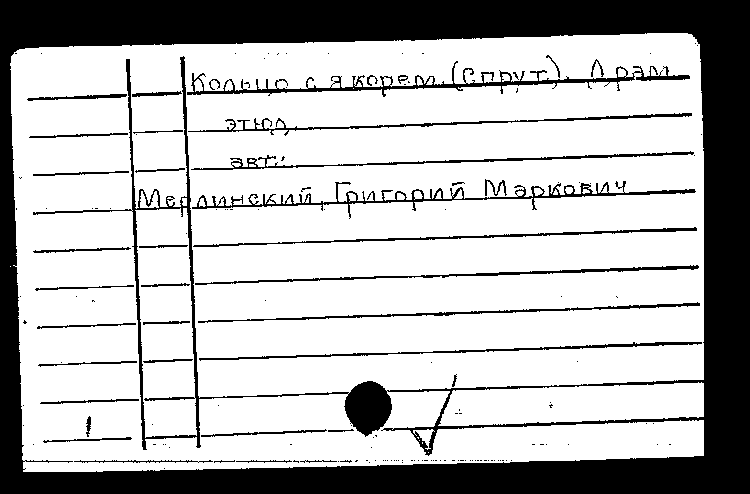 Кольцо с якорем. (Спрут). Драм.
этюд.
авт.:
Мерлинский, Григорий Маркович
1